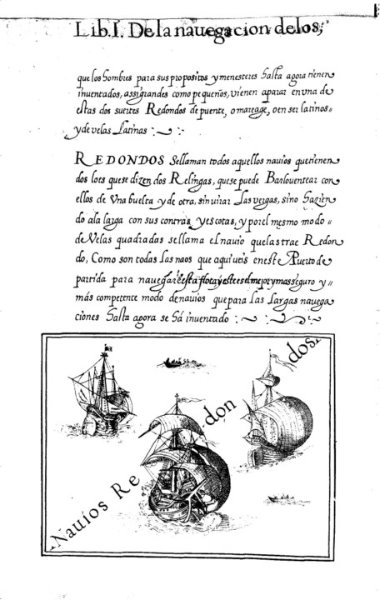 Lib. I. De la nauegacion delos,
que los hombres para sus propositos y menesteres hasta agora tienen
inuentados, assi grandes como pequeños, vienen a parar en vna de
estas dos suertes Redondos de puente, o mareage, o en ser latinos
y de velas Latinas
REDONDOS Se llaman todos aquellos nauios que tienen
dos loes que se dizen dos Relingas, que se puede Barloventear con
ellos de Vna buelta y de otra, sin virar Las vergas, sino hazien
do a la larga con sus contras, y escotas, y por el mismo modo
de Velas quadradas se llama el nauio que las trae Redon
do, Como son todas las naos que aqui veis en este Puerto de
partida para nauegar esta flota y este es el mejor y mas seguro y
más competente modo de nauios que para Las Largas nauega
ciones hasta agora se há inuentado
Nauios Redondos.